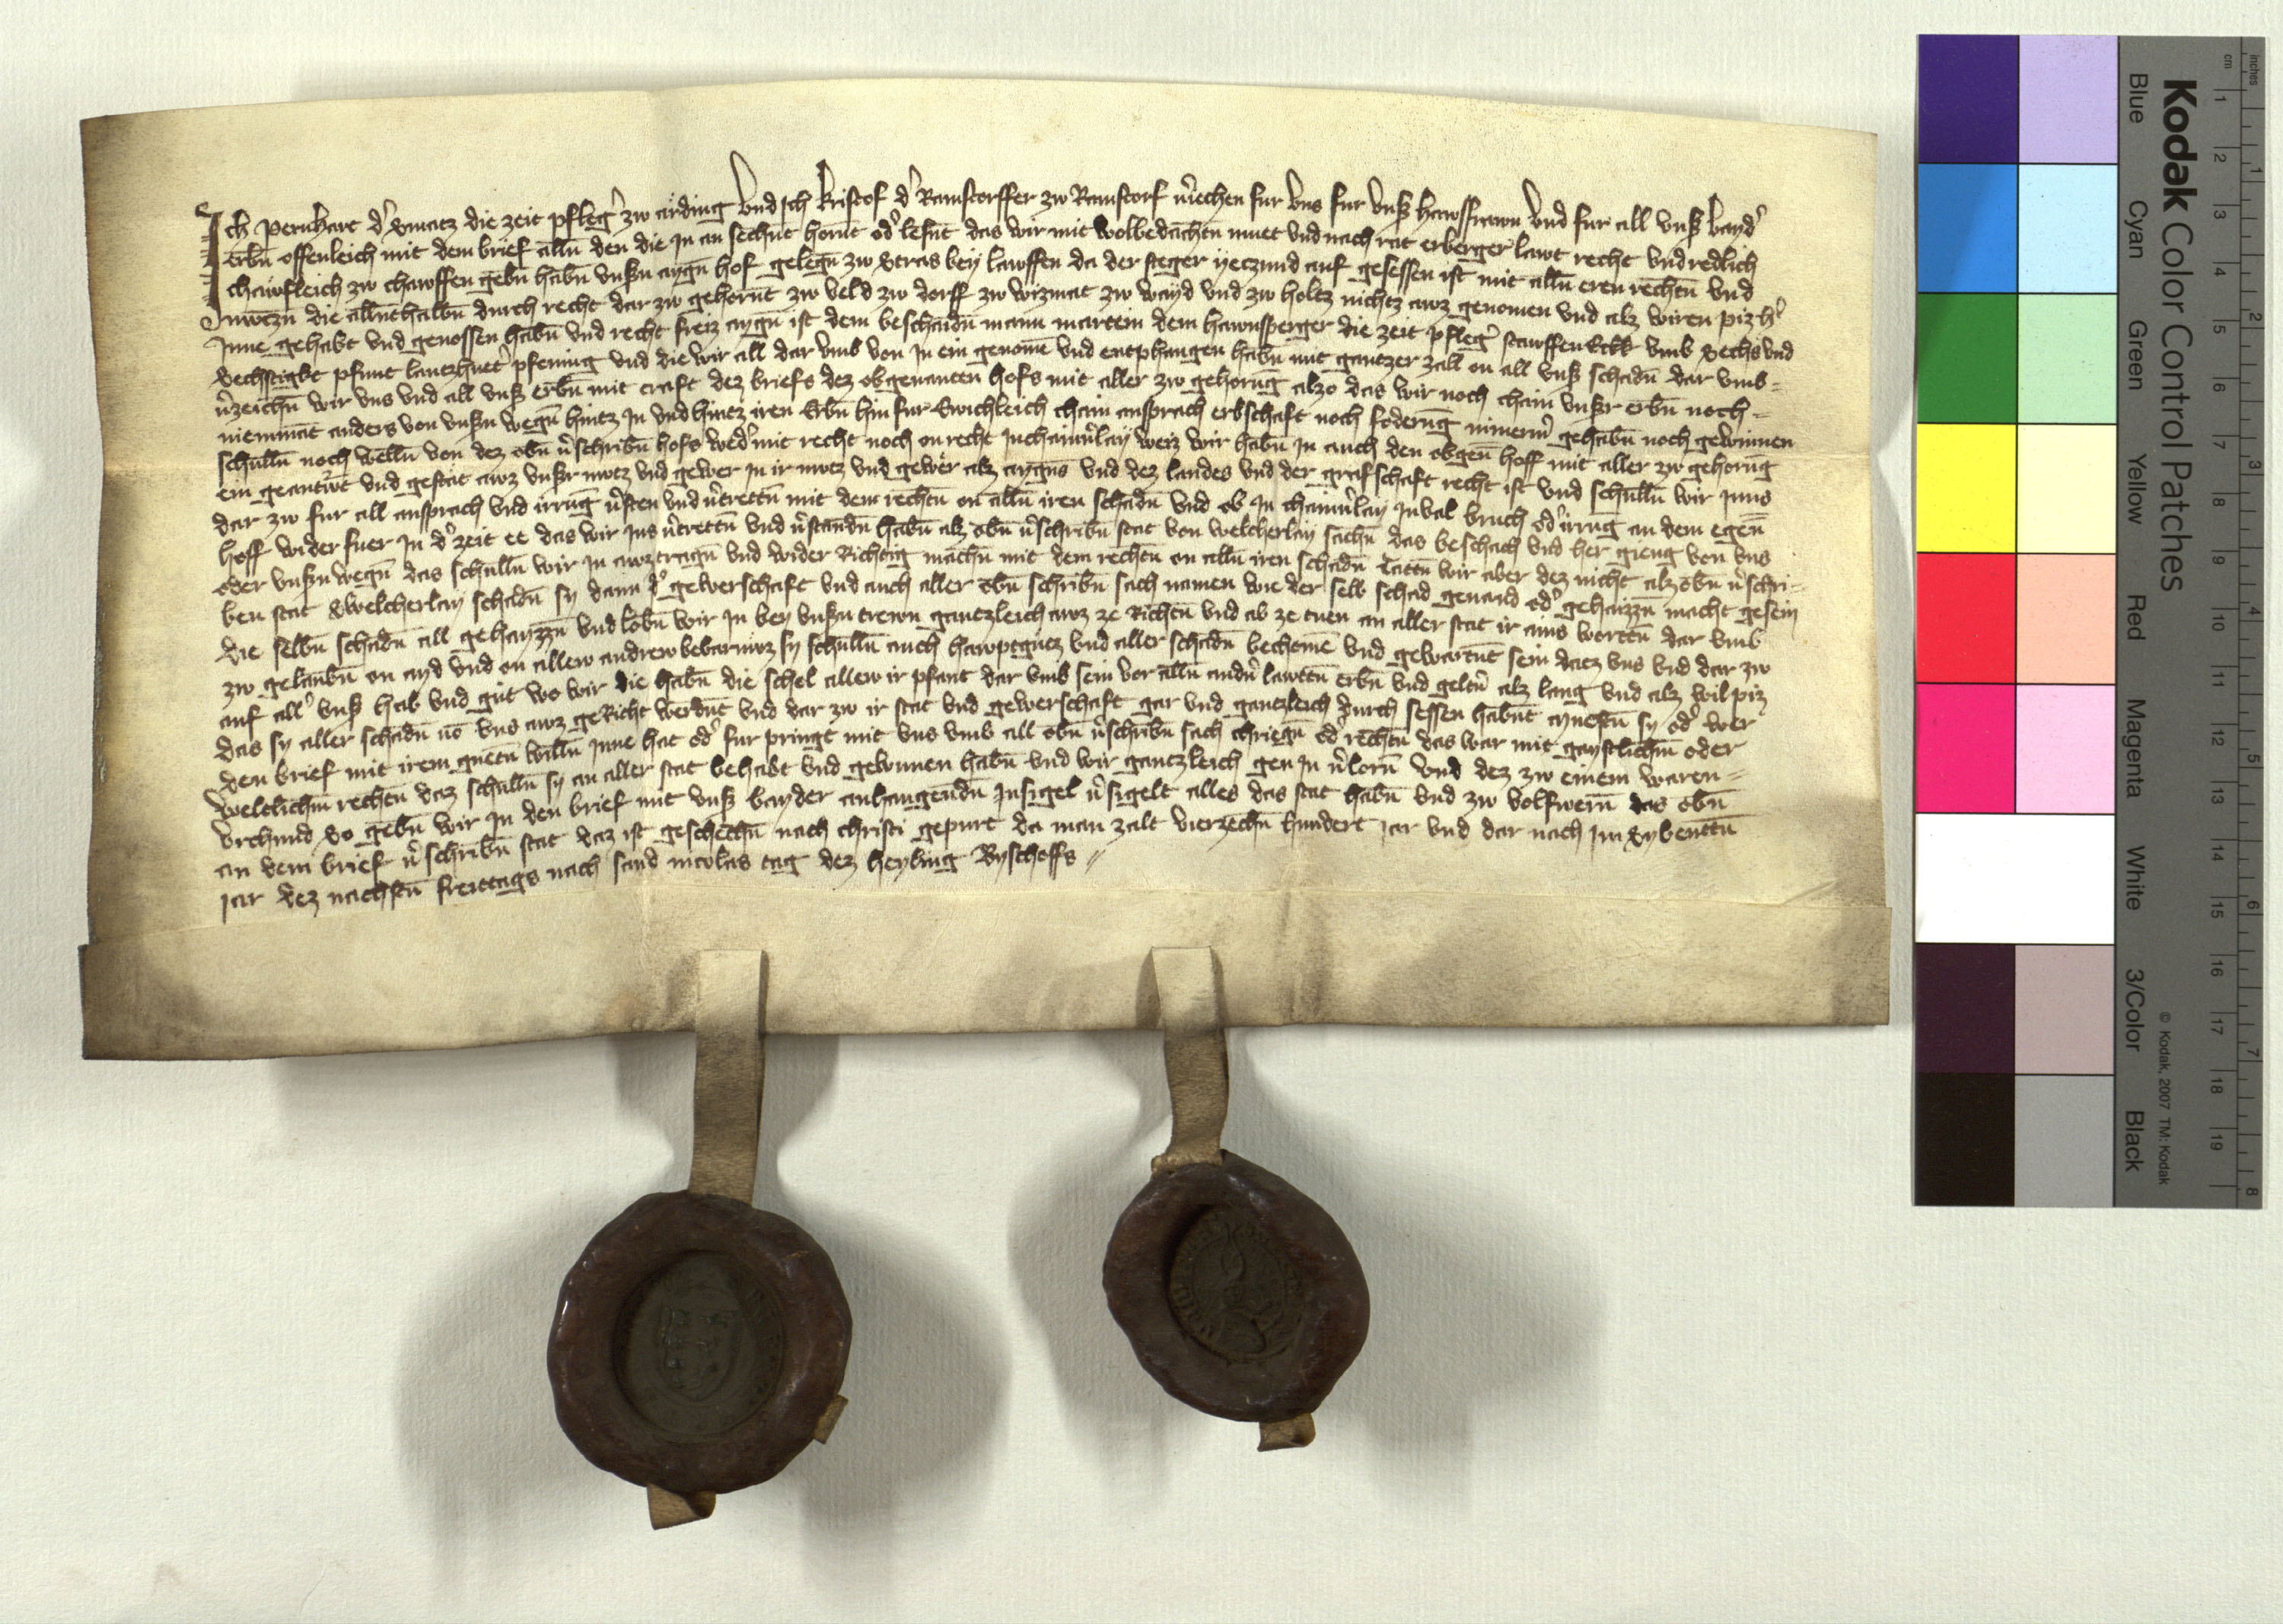 Ich Pernhart d' Smatz die zeit pfleg' zw arding Vnd Ich kristof d' Ramstorffer zw Ramstorf v'iechen fur vns fur vnß hawsfrawn Vnd fur all vnß bayd'
erbn̄ offenleich mit dem brief alln̄ den die In an sechnt hornt od' lesnt das wir mit Wolbedachtn̄ muet vnd nach rat erberger lawt recht vnd redlich
chawfleich zw chawffen gebn̄ habn̄ vnßn aygn̄ hof gelegn̄ zw Stras bey lawffen da der steger yeczund auf gesessen ist mit alln̄ eren rechtn̄ vnd
Nwczn̄ die allnthalbn̄ durch recht dar zw gehornt zw veld zw dorff zw wizmat zw wayd vnd zw holtz nichtz awz genomen vnd alz wiren piz h'
Inne gehabt vnd genossen habn̄ vnd recht freiz aygn̄ ist dem beschaidn̄ mann martein dem hawnsperger die zeit pfleg' stawffenekk vmb sechs vnd
sechstzigkt pfunt lantzhuet' pfening vnd die wir all dar vmb von In ein genome vnd entphangen habn̄ mit gantzer zall on all vnß schadn̄ dar vmb=
v'zeichn̄ wir vns vnd all vnß erbn̄ mit craft dez briefs dez obgenanten hofs mit aller zw gehorūg alzo das wir noch chain vnßr erbn̄ noch=
niemmāt anders von vnßn wegn̄ hintz In vnd hintz iren Erbn̄ hin fur Ewichleich chain ansprach erbschaft noch foderūg nimerm' gehabn̄ noch gewinnen
schulln̄ noch welln̄ von dez obn̄ v'schribn̄ hofs wed' mit recht noch on recht In chainn'lay weiz wir habn̄ In auch den obgen̄ hoff mit aller zw gehorūg
ein geantw't vnd gestāt awz vnßr nwtz vnd gewer In ir nwtz vnd gewer alz aygns vnd dez landes vnd der grafschaft recht ist vnd schulln̄ wir Inns
dar zw fur all anssprach vnd irrūg v'sten vnd v'trettn̄ mit dem rechtn̄ on alln̄ iren schadn̄ vnd ob In chainn'lay Inval bruch od' irrūg an dem egen̄
hoff wider fuer In d' zeit ee das wir Ins v'trettn̄ vnd v'standn̄ habn̄ alz obn̄ v'schribn̄ stat von welcherlay sachn̄ das beschach vnd her gieng von vns
oder vnßn wegn̄ das schulln̄ wir In awztragn̄ vnd wider Richtig machn̄ mit dem rechtn̄ on alln̄ iren schadn̄ Tattn̄ wir aber dez nicht alz obn̄ v'schri-
ben stat Swelcherlay schadn̄ sy dann d' gewerschaft vnd auch aller obn̄ schribn̄ sach namen wie der selb schad genand od' gehaizzn̄ macht gesein
die selbn̄ schadn̄ all gehayzzn̄ vnd lobn̄ wir In bey vnßn trewn gantzleich awz ze Richtn̄ vnd ab ze tuen an aller stat ir ains wortn̄ dar vmb
zw gelaubn̄ on ayd vnd on allew andrew bebarnwz sy schulln̄ auch hawptguetz vnd aller schadn̄ bechomē vnd gewartnt sein datz vns vnd dar zw
auf all' vnß hab vnd gut wo wir die habn̄ die schol allew ir pfant dar vmb sein vor alln̄ andn̄ lawttn̄ erbn̄ vnd geltn̄ alz lang vnd alz vil piz
das sy aller schadn̄ vō vns awz geRicht werdnt vnd dar zw ir stat vnd gewerschaft gar vnd gantzleich durch sessen habnt aynostn̄ sy od' wer
den brief mit irem guetn̄ willn̄ Inne hat od' fur pringt mit vns vmb all obn̄ v'schribn̄ sach chriegn̄ od' rechtn̄ das war mit gaystlichm oder
weltlichm rechtn̄ daz schulln̄ sy an aller stat behabt vnd gewunnen habn̄ vnd wir gantzleich gen In v'lorn̄ Vnd dez zw einem waren=
vrchund So gebn̄ wir In den brief mit vnß bayder anhangendn̄ Insigel v'sigelt alles das stat habn̄ vnd zw volfwern̄ das obn̄
an dem brief v'schribn̄ stat daz ist geschechn̄ nach christi gepurt da man zalt vierzechn̄ hundert Jar vnd dar nach Im Sybenttn̄
Jar dez nachstn̄ freittags nach sand nicolas tag dez heyling Byschoffs
Kodak Color Control Patches
Blue Cyan Green Yellow Red Magenta White 3/Color Black
© Kodak, 2007 TM: Kodak
inches 1 2 3 4 5 6 7 8
cm 1 2 3 4 5 6 7 8 9 10 11 12 13 14 15 16 17 18 19